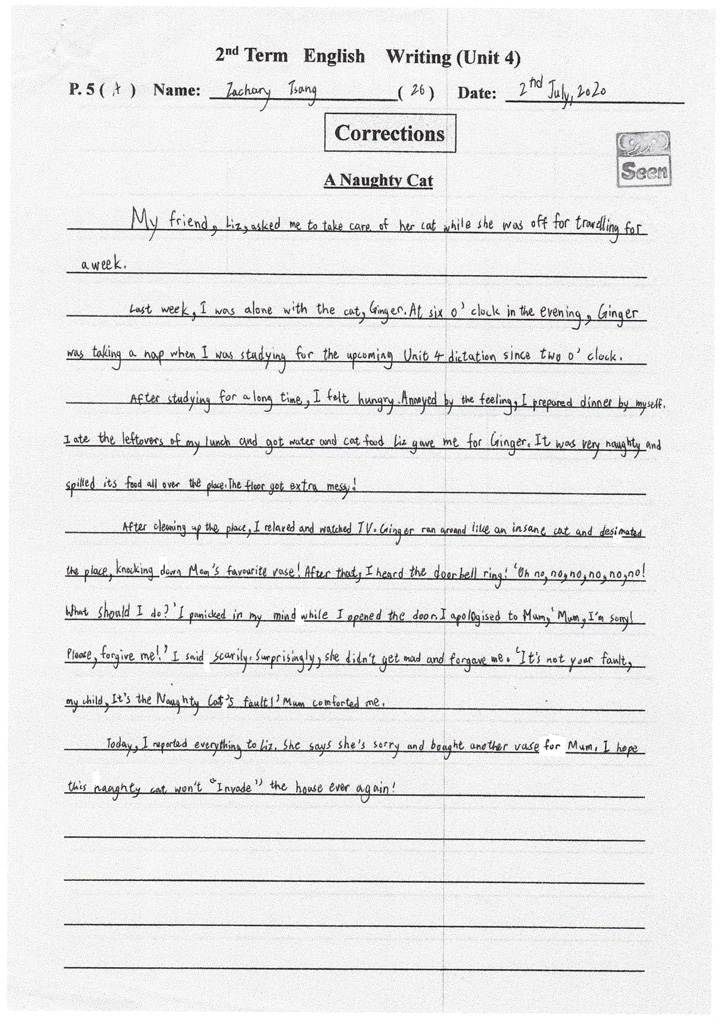 2nd Term English Writing (Unit 4)
P. 5 ( A ) Name: Zachary Tsang ( 26 ) Date: 2nd July, 2020
Corrections
Seen
A Naughty Cat
My friend, Liz, asked me to take care of her cat while she was off for travelling for
a week.
Last week, I was alone with the cat, Ginger. At six o'clock in the evening, Ginger
was taking a nap when I was studying for the upcoming Unit 4 dictation since two o'clock.
After studying for a long time, I felt hungry. Annoyed by the feeling, I prepared dinner by myself.
I ate the leftovers of my lunch and got water and cat food Liz gave me for Ginger. It was very naughty and
spilled its food all over the place. The floor got extra messy!
After cleaning up the place, I relaxed and watched TV. Ginger ran around like an insane cat and desimated
the place, knocking down Mom's favourite vase! After that, I heard the doorbell ring! 'Oh no, no, no, no, no, no!
What should I do?' I panicked in my mind while I opened the door. I apologised to Mum, 'Mum, I'm sorry!
Please, forgive me!' I said scarily. Surprisingly, she didn't get mad and forgave me. 'It's not your fault,
my child, It's the Naughty Cat's fault!' Mum comforted me.
Today, I reported everything to Liz. She says she's sorry and bought another vase for Mum. I hope
this naughty cat won't "Invade" the house ever again!